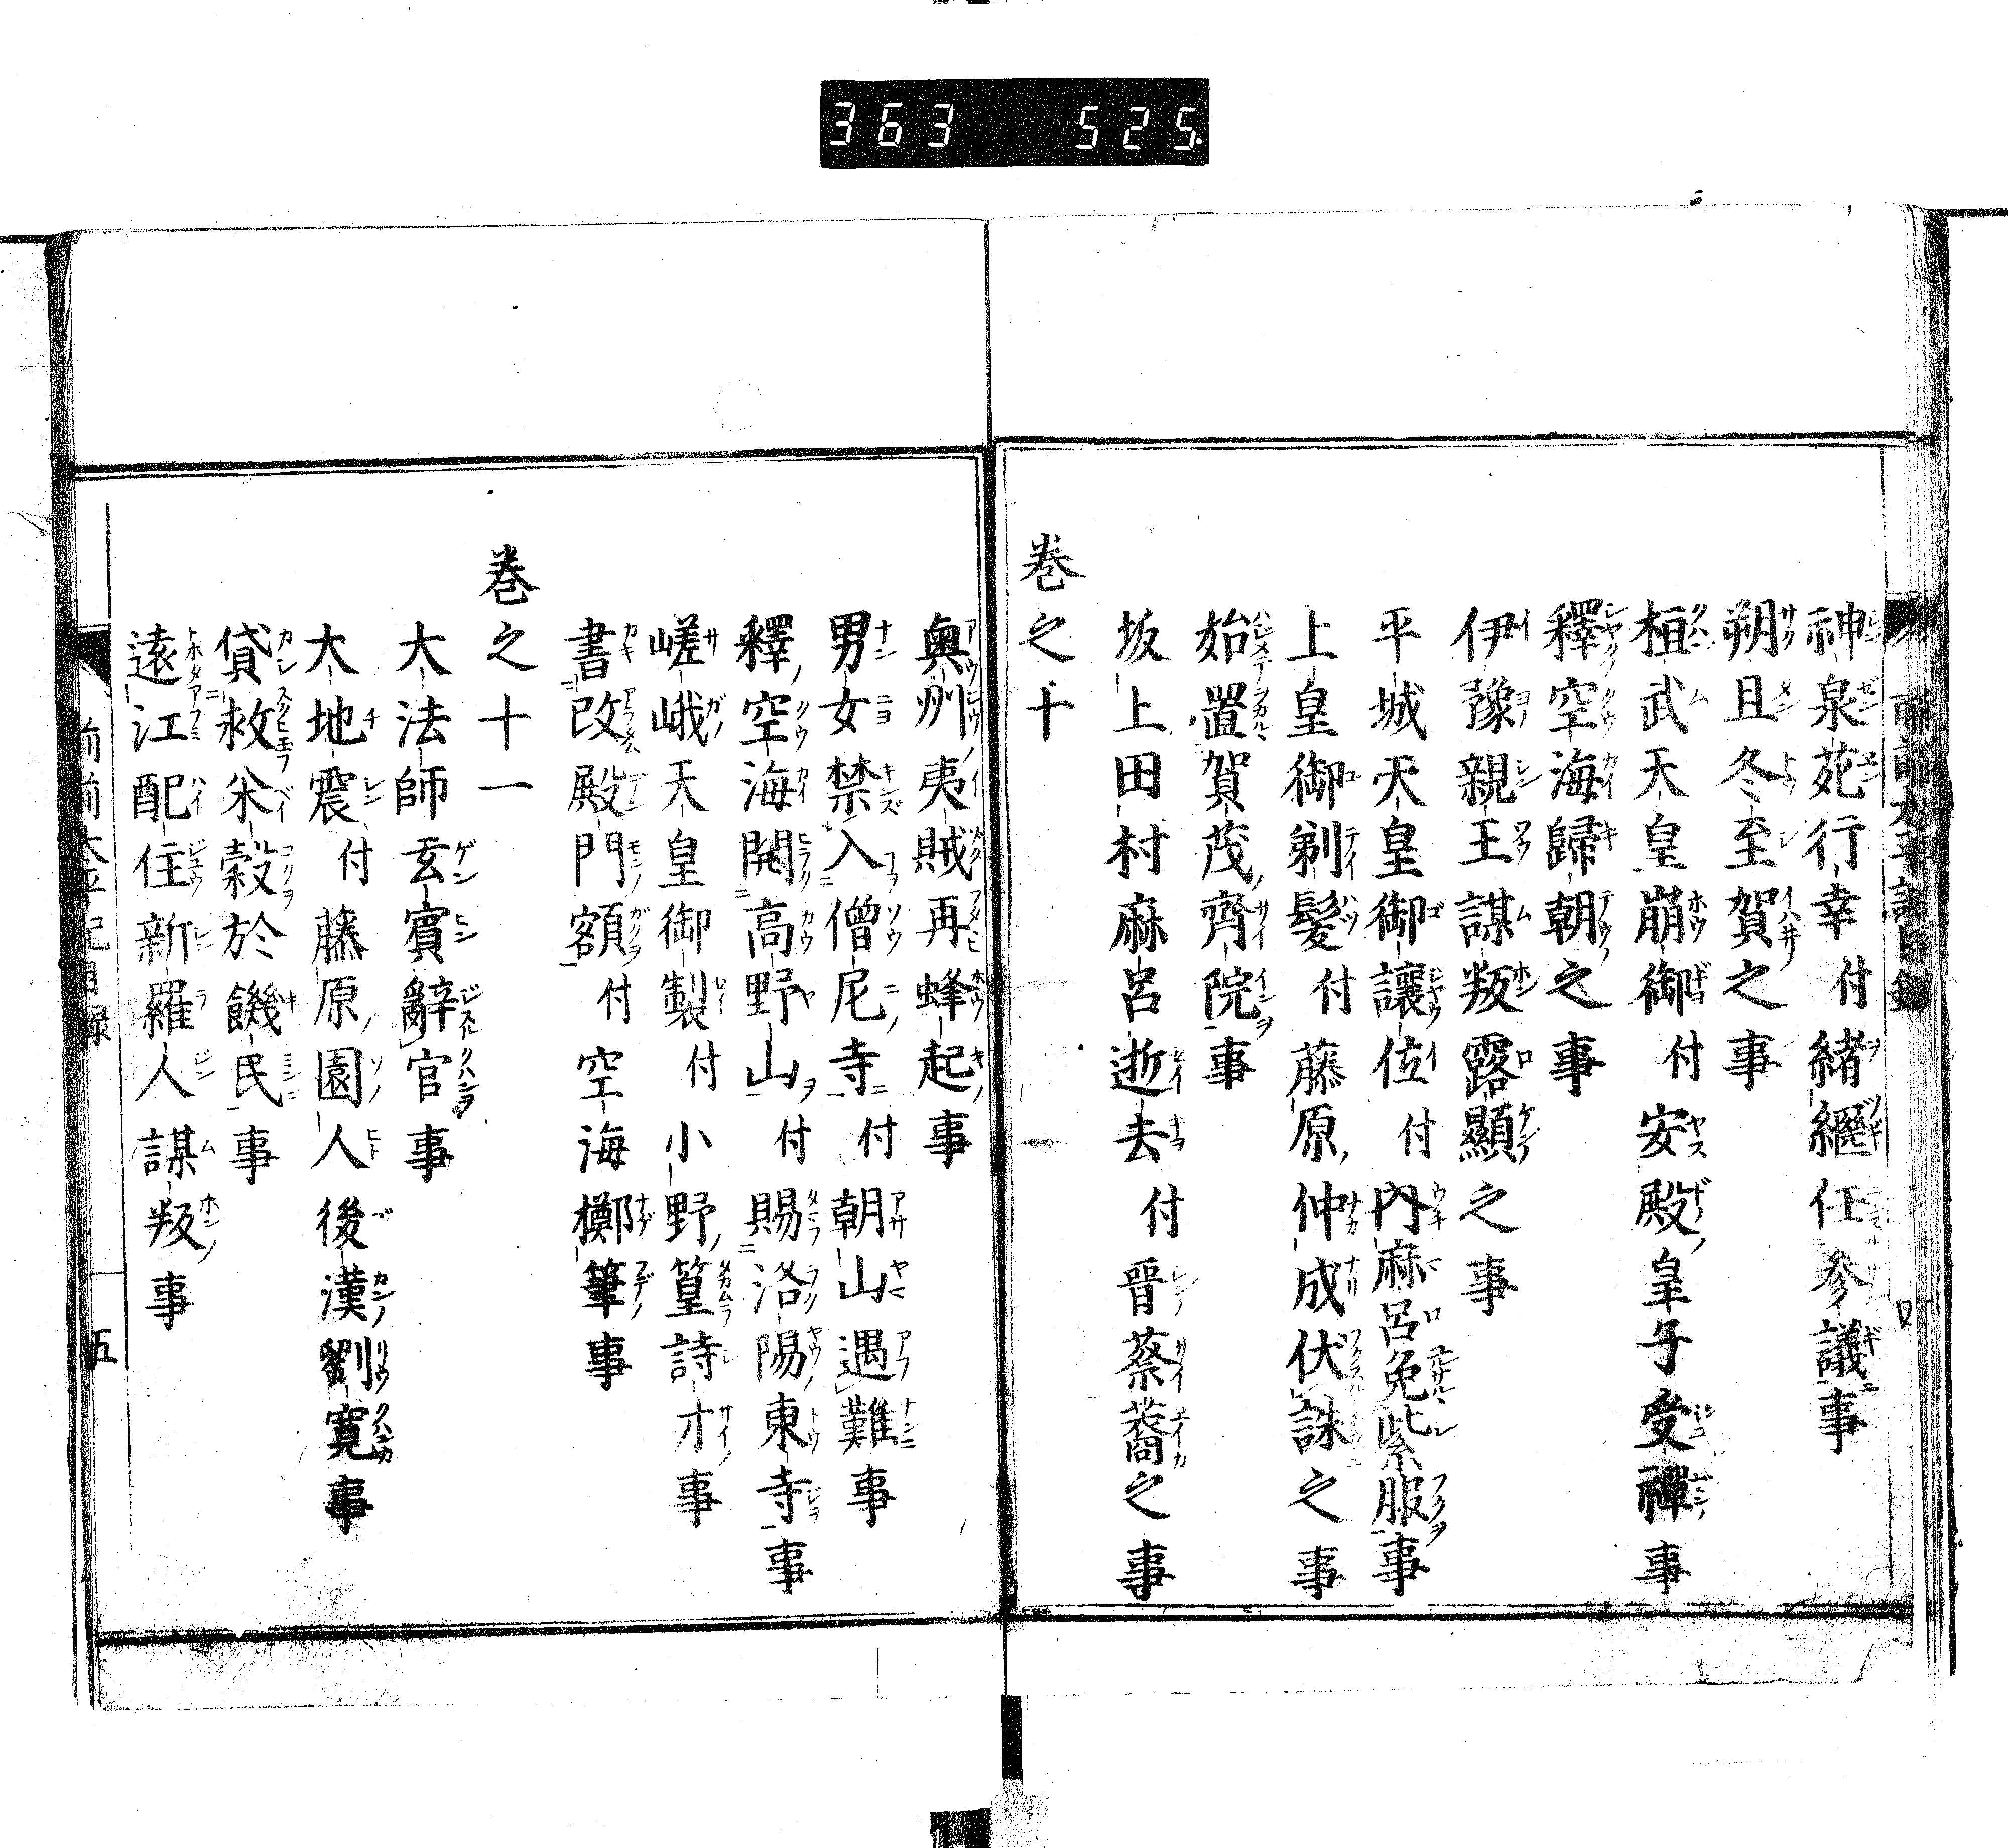 363 525
神泉苑行幸付緒繼任參議事
朔旦冬至賀之事
桓武天皇崩御付安殿皇子受禪事
釋空海歸朝之事
伊豫親王謀叛露顯之事
平城天皇御讓位付内麻呂免紫服事
上皇御剃髮付藤原仲成伏誅之事
始置賀茂齊院事
坂上田村麻呂逝去付晉蔡裔之事
卷之十
奥州夷賊再蜂起事
男女禁入僧尼寺付朝山遇難事
釋空海開高野山付賜洛陽東寺事
嵯峨天皇御製付小野篁詩才事
書改殿門額付空海擲筆事
卷之十一
大法師玄賓辭官事
大地震付藤原園人後漢劉寬事
貸救米穀於饑民事
遠江配住新羅人謀叛事
前前太平記目録
五